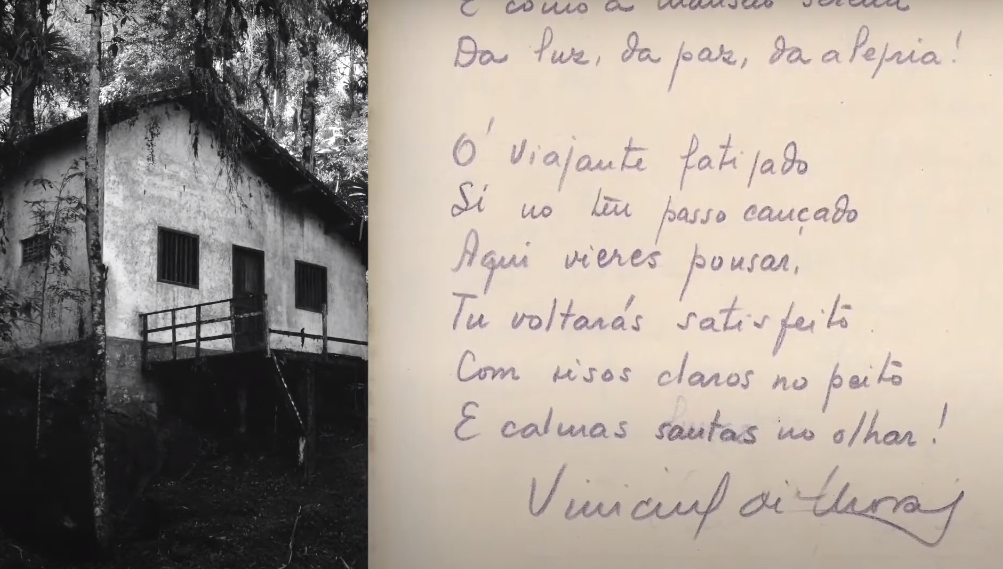 E como a mansão serena
Da luz, da paz, da alegria!
Ó viajante fatigado
Si no teu passo cançado
Aqui vieres pousar,
Tu voltarás satisfeito
Com risos claros no peito
E calmas santas no olhar!
Vinicius de Moraes